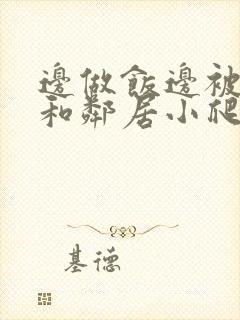 邊做飯邊被
和鄰居小爬
基德